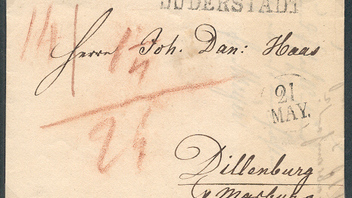 DUDERSTADT
14
Herrn Joh. Dan: Haas
21
MAY.
Dillenburg
v Marburg